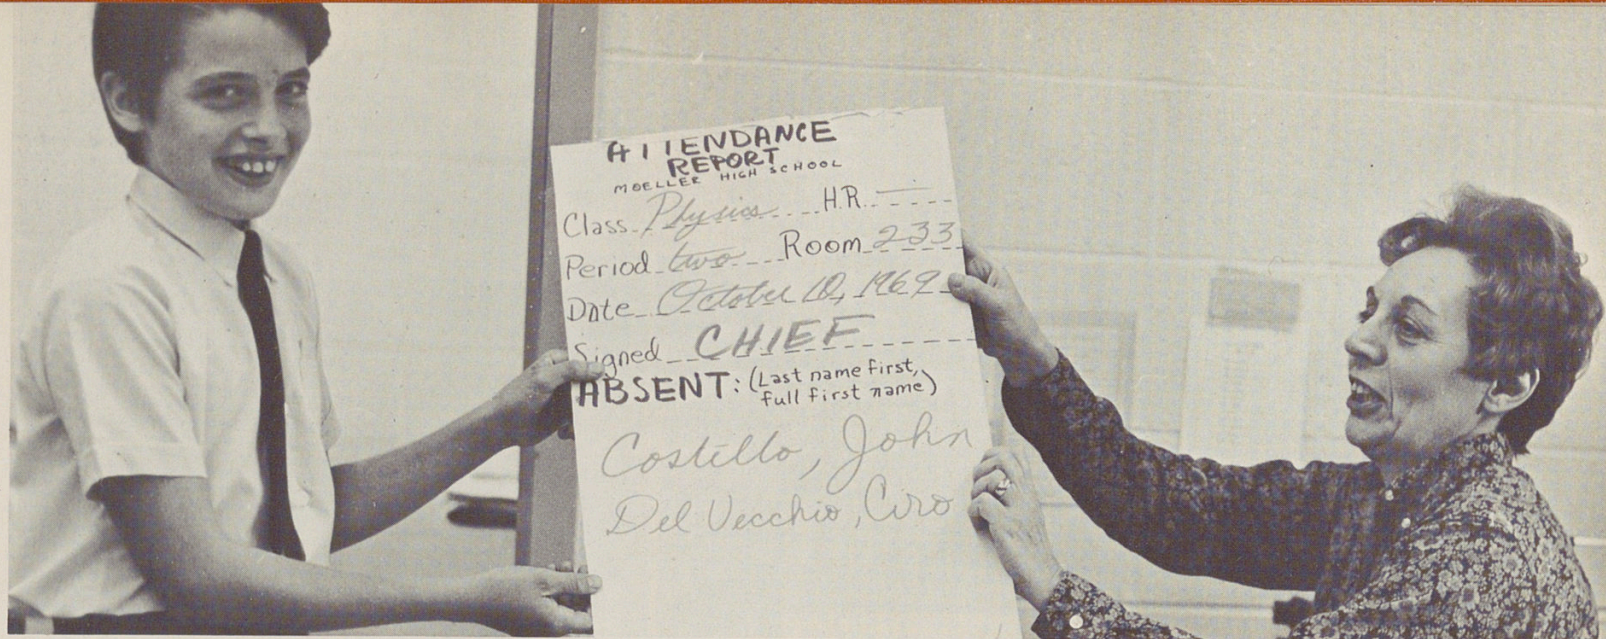 ATTENDANCE
REPORT
MOELLER HIGH SCHOOL
Class Physics H.R.
Period two Room 233
Date October 10, 1969
Signed CHIEF
ABSENT: (Last name first,
full first name)
Costello, John
Del Vecchio, Ciro